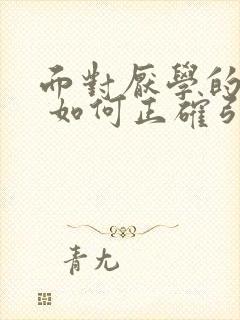 而對厭學的
如何正確
青尤